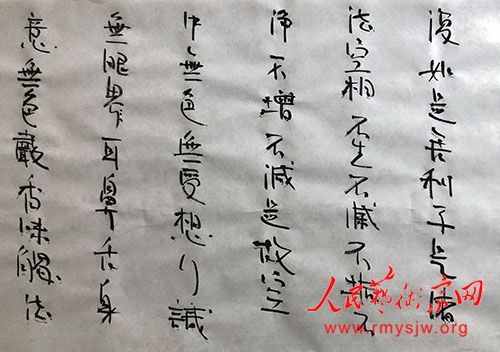 復如是舍利子是諸
法空相不生不滅不垢不
淨不增不減是故空
中無色無受想行識
無眼界耳鼻舌身
意無色聲香味觸法
人民藝術家网
www.rmysjw.org